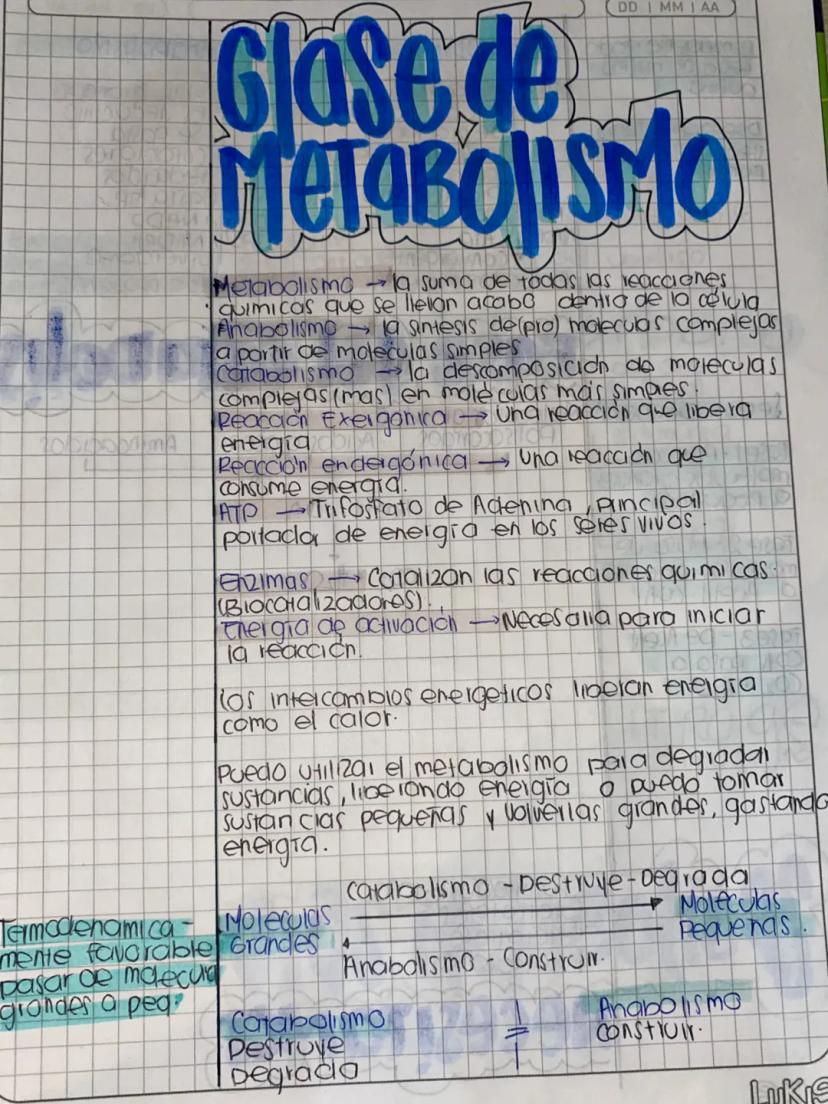 DD | MM | AA
Clase de
Metabolismo
Metabolismo → la suma de todas las reacciones
químicas que se llevan acabo dentro de la célula
Anabolismo → la síntesis de (pro) moleculas complejas
a partir de moleculas simples
Catabolismo → la descomposición de moleculas
complejas (mas) en moléculas más simples.
Reacción Exergónica → una reacción que libera
energía
Reacción endergónica → una reacción que
consume energía.
ATP → Trifosfato de Adenina, principal
portador de energía en los seres vivos.
Enzimas → Catalizan las reacciones químicas.
(Biocatalizadores).
Energía de activación → Necesaria para iniciar
la reacción.
los intercambios energeticos liberan energía
como el calor.
Puedo utilizar el metabolismo para degradar
sustancias, liberando energía o puedo tomar
sustancias pequeñas y volverlas grandes, gastando
energía.
Catabolismo - Destruye - Degrada
Moleculas
Grandes
Moleculas
Pequeñas.
Anabolismo - Construir.
Termodenamica-
mente favorable
pasar de molecula
grandes a peq.
Catabolismo
Destruye
Degrado
≠
Anabolismo
construir.